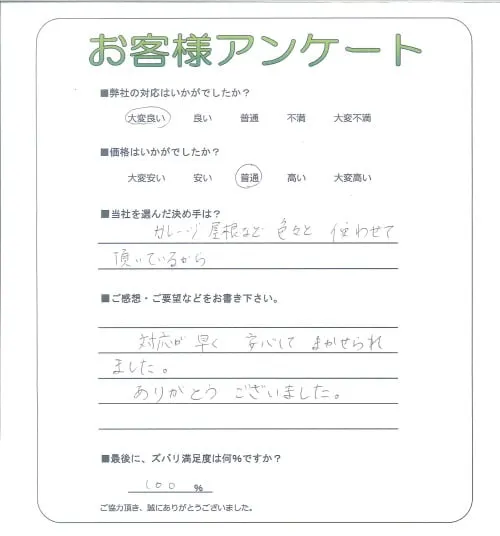 お客様アンケート
■弊社の対応はいかがでしたか?
大変良い 良い 普通 不満 大変不満
■価格はいかがでしたか?
大変安い 安い 普通 高い 大変高い
■当社を選んだ決め手は?
ガレージ 屋根など 色々と 使わせて
頂いているから
■ご感想・ご要望などをお書き下さい。
対応が 早く 安心して まかせられ
ました。
ありがとう ございました。
■最後に、ズバリ満足度は何%ですか?
100 %
ご協力頂き、誠にありがとうございました。